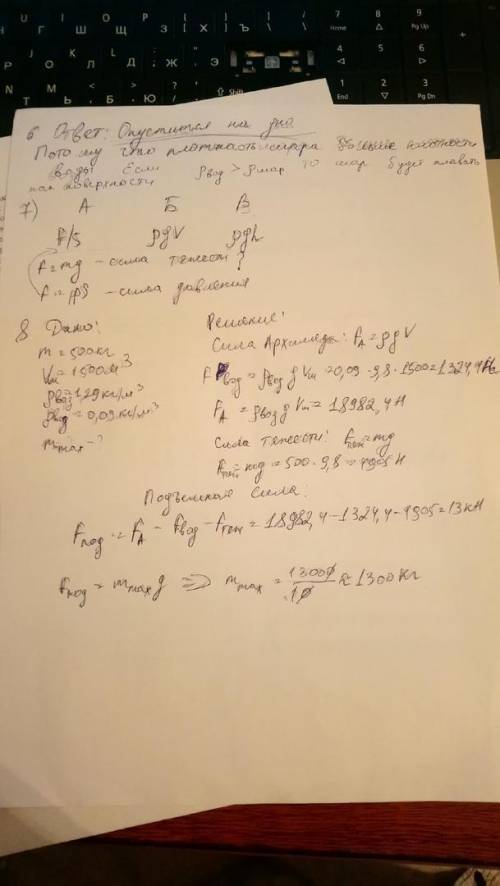 6 Ответ: Опустится на дно
Потому что плотность шара больше плотности
воды Если ρвод > ρшар то шар будет плавать
на поверхности
7) А Б В
F/S ρgV ρgh
F=mg - сила тяжести ?
F=pS - сила давления
8 Дано:
m = 500 кг
Vш = 1500 м³
ρвоз = 1,29 кг/м³
ρвод = 0,09 кг/м³
mmax - ?
Решение:
Сила Архимеда: FA = ρgV
Fвод = ρвод g Vш = 0,09 · 9,8 · 1500 = 1324,4 Н
FA = ρвоз g Vш = 18982,4 Н
Сила тяжести: Fтяж = mg
Fтяж = mоб g = 500 · 9,8 = 4905 Н
Подъемная сила:
Fпод = FA - Fвод - Fтяж = 18982,4 - 1324,4 - 4905 = 13 кН
Fпод = mmax g => mmax = 13000/10 ≈ 1300 кг